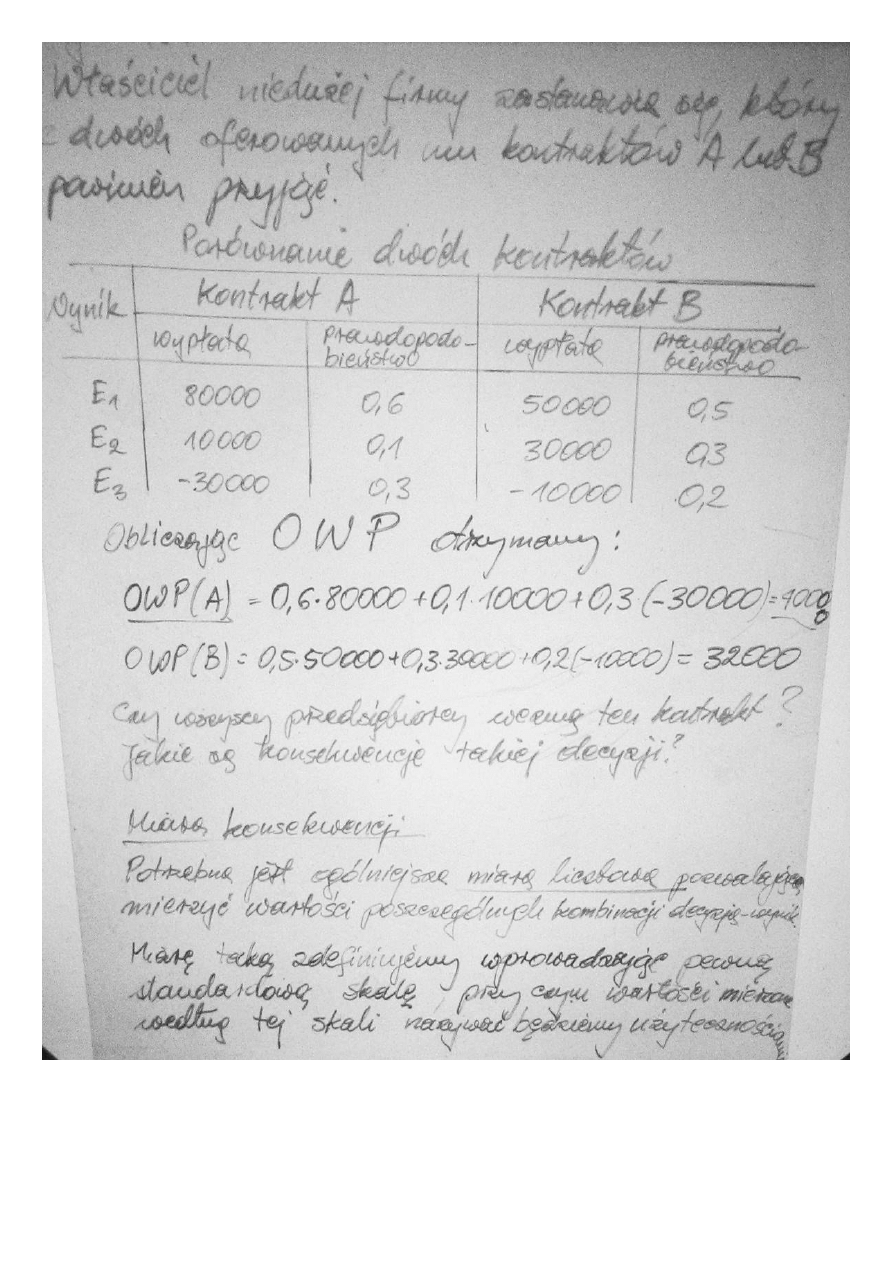 Właściciel niedużej firmy zastanawia się, który
z dwóch oferowanych mu kontraktów A lub B
powinien przyjąć.
Porównanie dwóch kontraktów
Wynik Kontrakt A Kontrakt B
wypłata prawdopodo- wypłata prawdopodo-
bieństwo bieństwo
E1 80000 0,6 50000 0,5
E2 10000 0,1 30000 0,3
E3 -30000 0,3 -10000 0,2
Obliczając OWP otrzymamy:
OWP(A) = 0,6·80000+0,1·10000+0,3·(-30000)=40000
OWP(B) = 0,5·50000+0,3·30000+0,2(-10000) = 32000
Czy wszyscy przedsiębiorcy wezmą ten kontrakt?
Jakie są konsekwencje takiej decyzji?
Miara konsekwencji
Potrzebna jest ogólniejsza miara liczbowa pozwalająca
mierzyć wartości poszczególnych kombinacji decyzja-wynik.
Miarę taką zdefiniujemy wprowadzając pewną
standardową skalę, przy czym wartości mierzone
według tej skali nazywać będziemy użytecznościami